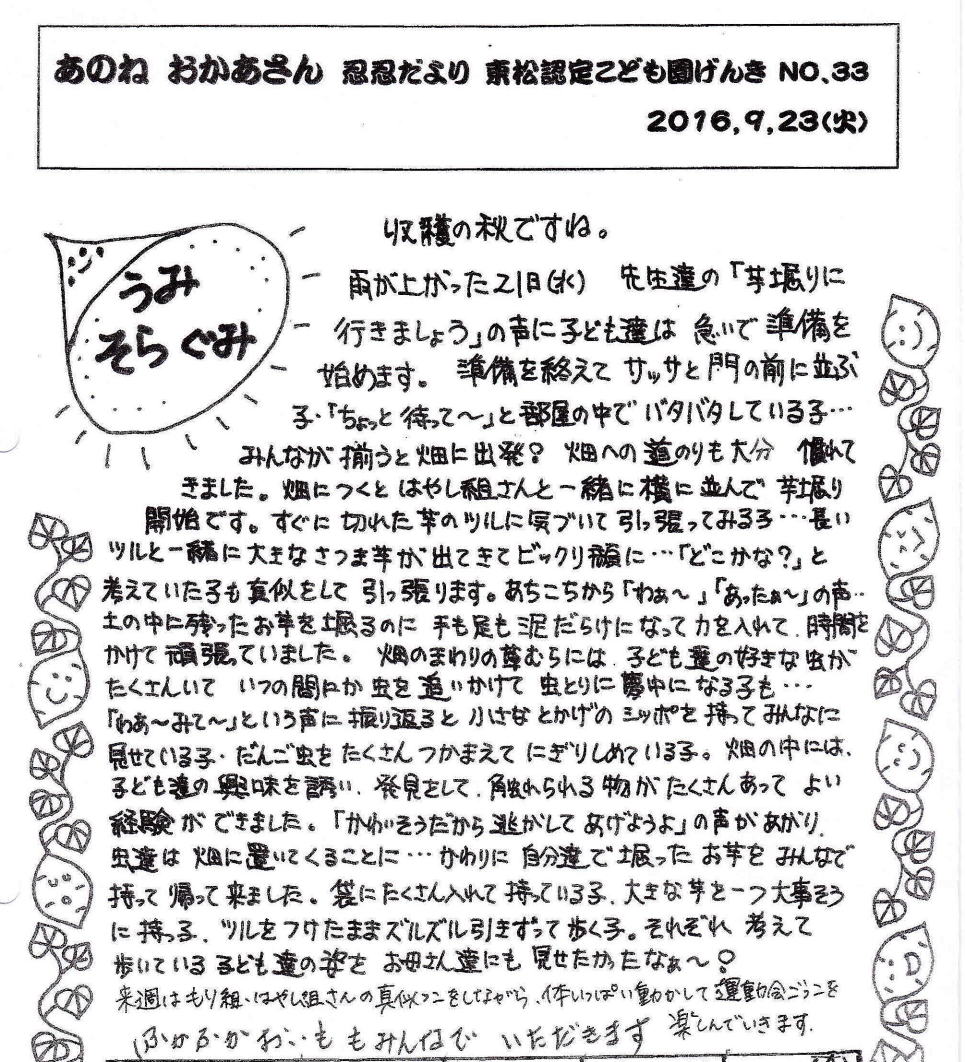 あのね おかあさん 忍忍だより 東松認定こども園げんき NO.33
2016.9.23(火)
うみ
そらぐみ
収穫の秋ですね。
雨が上がった21日(水) 先生達の「芋堀りに
行きましょう」の声に子ども達は 急いで 準備を
始めます。 準備を終えて サッサと 門の前に並ぶ
子・「ちょっと待って〜」と部屋の中で バタバタしている子…
みんなが揃うと畑に出発? 畑への道のりも大分 慣れて
きました。畑につくと はやし組さんと一緒に横に並んで 芋堀り
開始です。すぐに 切れた芋のツルに気づいて引っ張ってみる子…長い
ツルと一緒に大きなさつま芋が出てきてビックリ顔に…「どこかな?」と
考えていた子も真似をして 引っ張ります。あちこちから「わぁ〜」「あったぁ〜」の声…
土の中に残ったお芋を堀るのに 手も足も泥だらけになって力を入れて、時間を
かけて頑張っていました。 畑のまわりの草むらには、子ども達の好きな虫が
たくさんいて いつの間にか 虫を追いかけて 虫とりに夢中になる子も…
「わぁ〜みて〜」という声に振り返ると 小さなとかげのシッポを持ってみんなに
見せている子・だんご虫をたくさんつかまえて にぎりしめている子。畑の中には、
子ども達の興味を誘い、発見をして、触れられる物がたくさんあって よい
経験ができました。「かわいそうだから逃がしてあげようよ」の声があがり、
虫達は畑に置いてくることに…かわりに 自分達で堀ったお芋をみんなで
持って帰って来ました。袋にたくさん入れて持っている子、大きな芋を一つ大事そう
に持つ子、ツルをつけたままズルズル引きずって歩く子。それぞれ 考えて
歩いている子ども達の姿を お母さん達にも見せたかったなぁ〜?
来週はもり組・はやし組さんの真似っこをしながら、体いっぱい動かして運動会ごっこを
楽しんでいきます。
ふかふかおいももみんなで いただきます